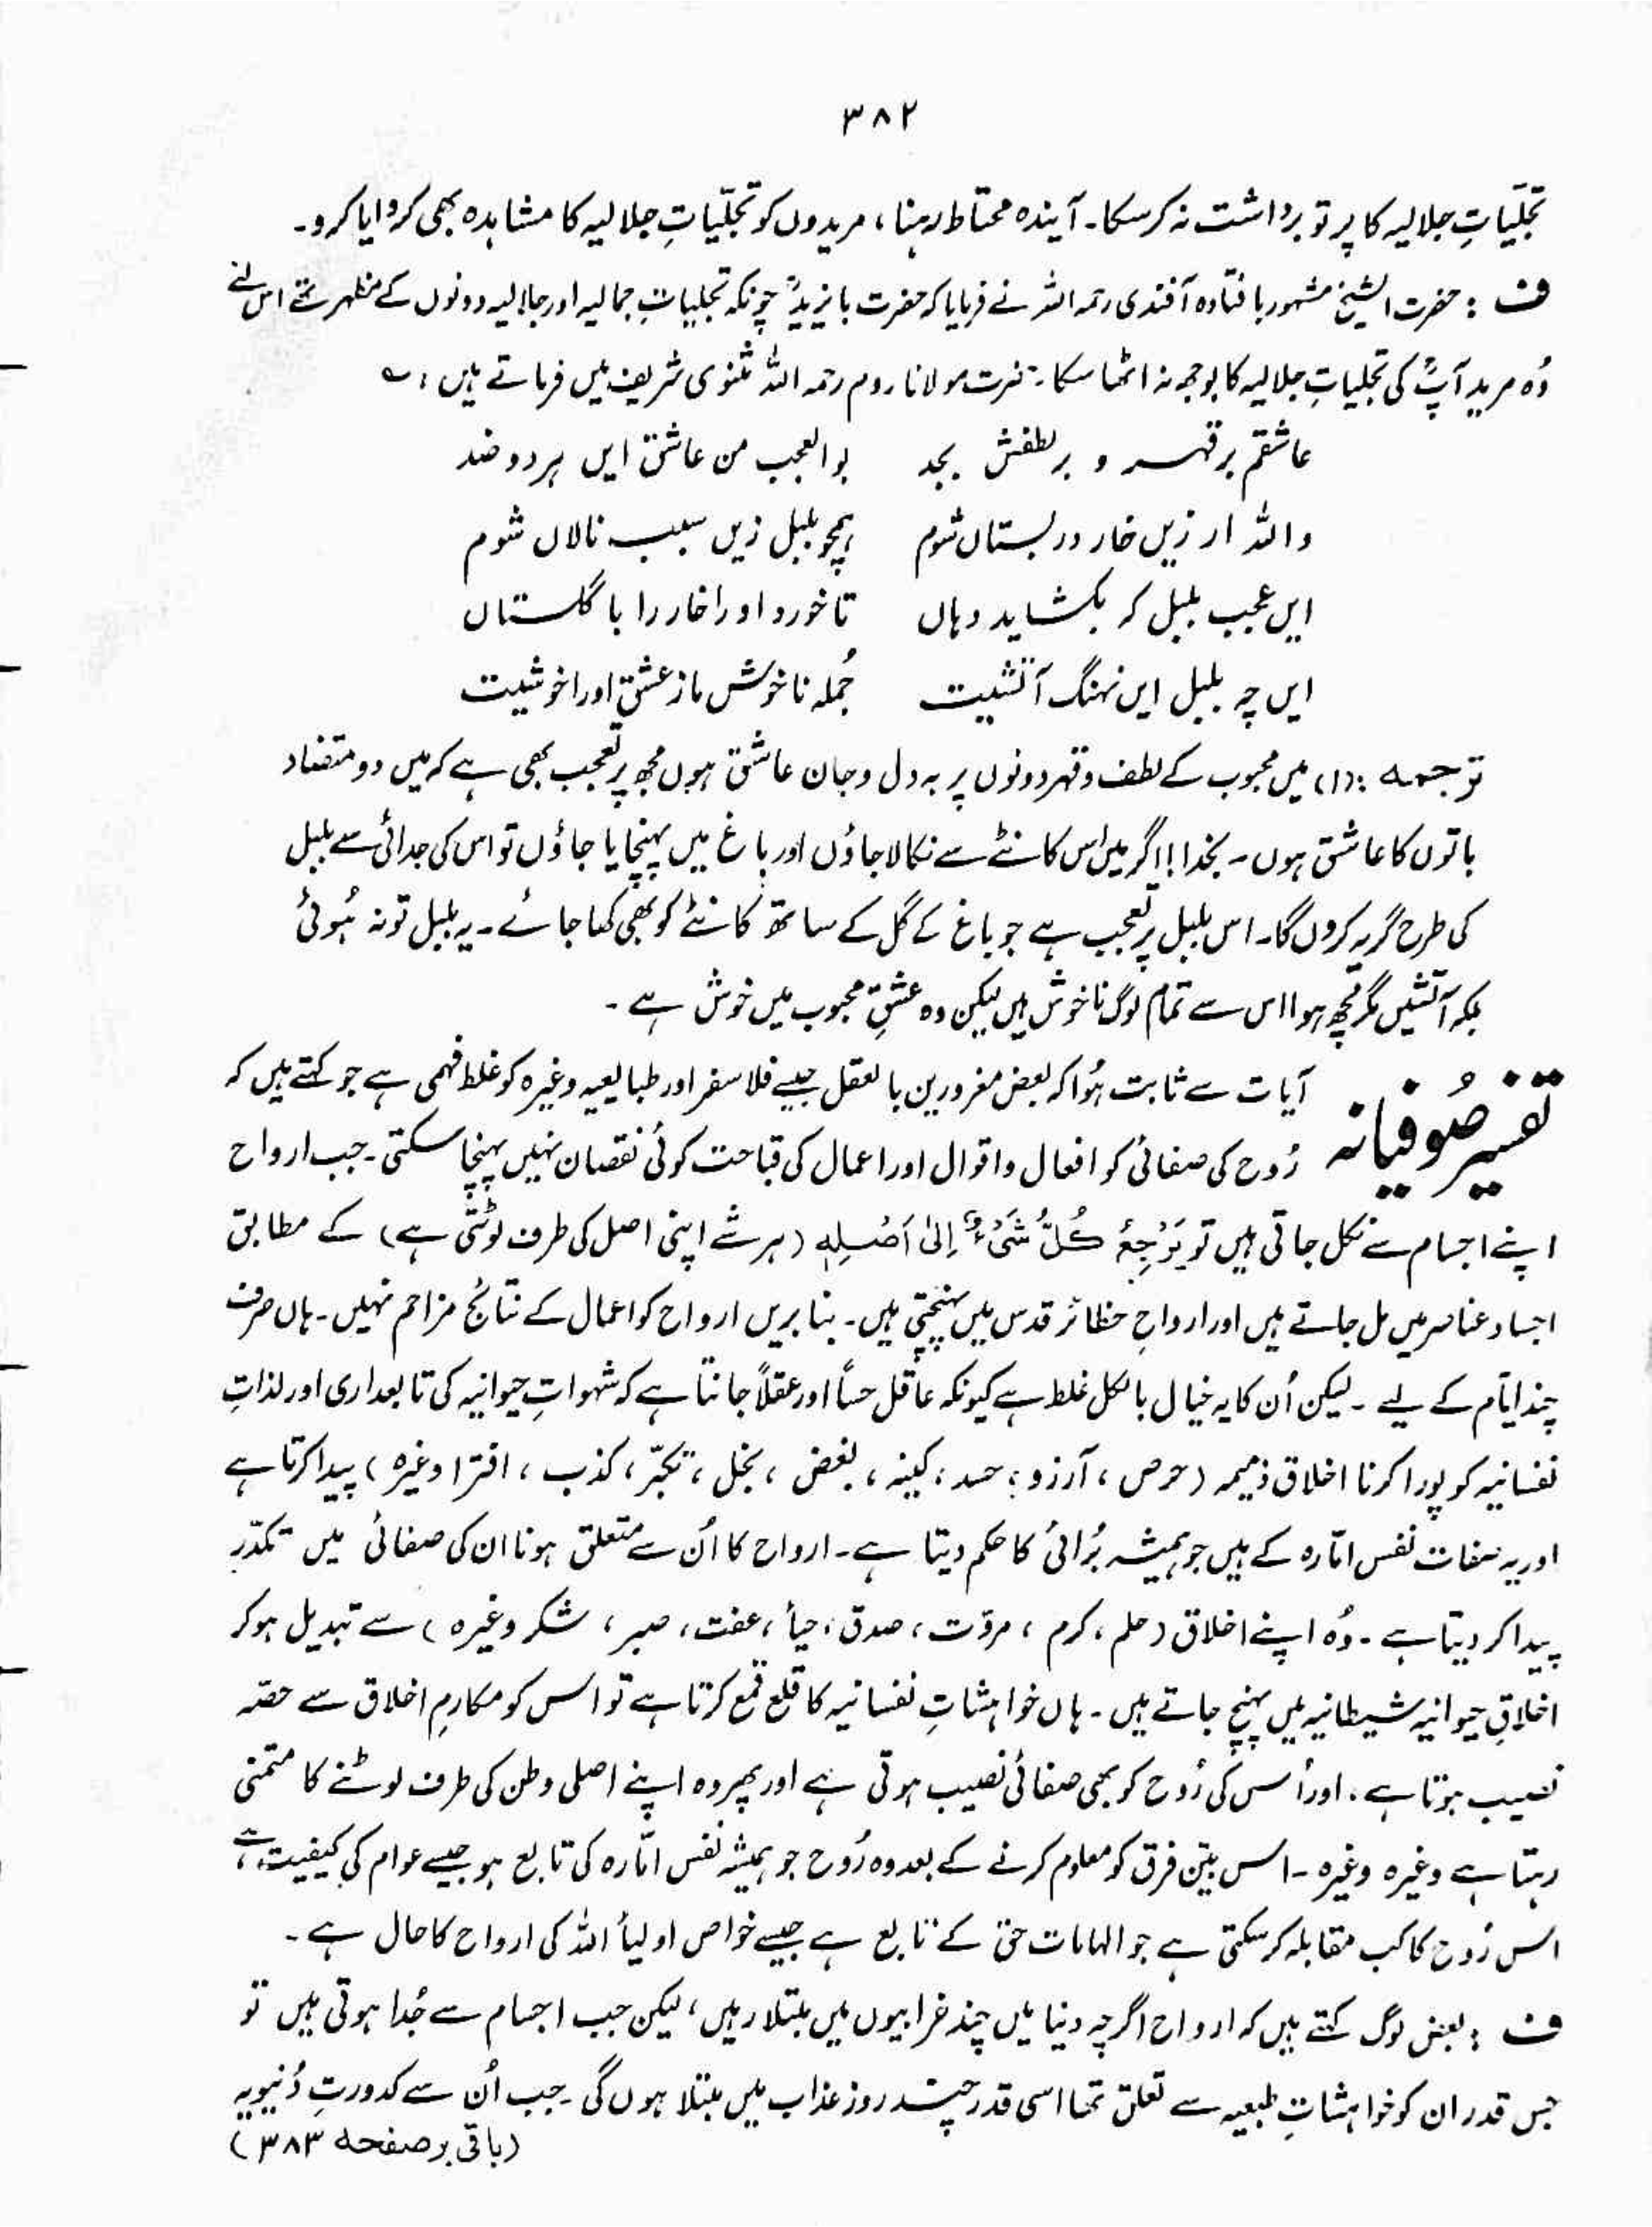 ۳۸۲
تجلّیاتِ جلالیہ کا پرتو برداشت نہ کرسکا۔ آیندہ محتاط رہنا ، مریدوں کو تجلّیاتِ جلالیہ کا مشاہدہ بھی کروایا کرو۔
ف : حضرت الشیخ مشہور بافتادہ آفندی رحمہ اللہ نے فرمایا کہ حضرت بایزیدؒ چونکہ تجلیاتِ جمالیہ اور جلالیہ دونوں کے مظہر تھے اس لئے
وُہ مرید آپؒ کی تجلیاتِ جلالیہ کا بوجھ نہ اٹھا سکا۔ حضرت مولانا روم رحمہ اللہ مثنوی شریف میں فرماتے ہیں : ؎
عاشقم بر قہر و بر لطفش بجد بوالعجب من عاشق ایں ہر دو ضد
واللہ ار زیں خار در بستاں شوم ہمچو بلبل زیں سبب نالاں شوم
ایں عجب بلبل کہ بکشاید دہاں تا خورد او را خار را با گلستاں
ایں چہ بلبل ایں نہنگ آتشیت جُملہ ناخوش ما ز عشق او را خوشیت
ترجمہ :(۱) میں محبوب کے لطف و قہر دونوں پر بہ دل و جان عاشق ہوں مجھ پر تعجب بھی ہے کہ میں دو متضاد
باتوں کا عاشق ہوں۔ بخدا ! اگر میں اس کانٹے سے نکالا جاؤں اور باغ میں پہنچایا جاؤں تو اس کی جدائی سے بلبل
کی طرح گریہ کروں گا۔ اس بلبل پر تعجب ہے جو باغ کے گل کے ساتھ کانٹے کو بھی کھا جائے۔ یہ بلبل تو نہ ہُوئی
بلکہ آتشیں مگرمچھ ہوا اس سے تمام لوگ ناخوش ہیں لیکن وہ عشقِ محبوب میں خوش ہے ۔
تفسیر صُوفیانہ آیات سے ثابت ہُوا کہ بعض مغرورین بالعقل جیسے فلاسفر اور طبایعیہ وغیرہ کو غلط فہمی ہے جو کہتے ہیں کہ
رُوح کی صفائی کو افعال و اقوال اور اعمال کی قباحت کوئی نقصان نہیں پہنچا سکتی۔ جب ارواح
اپنے اجسام سے نکل جاتی ہیں تو یَرْجِعُ کُلُّ شَیْءٍ اِلیٰ اَصْلِہٖ (ہر شے اپنی اصل کی طرف لوٹتی ہے) کے مطابق
اجساد عناصر میں مل جاتے ہیں اور ارواحِ حظائر قدس میں پہنچتی ہیں۔ بنا بریں ارواح کو اعمال کے نتائج مزاحم نہیں۔ ہاں صرف
چند ایّام کے لیے ۔ لیکن اُن کا یہ خیال بالکل غلط ہے کیونکہ عاقل حساً اور عقلاً جانتا ہے کہ شہواتِ حیوانیہ کی تابعداری اور لذاتِ
نفسانیہ کو پورا کرنا اخلاق ذمیمہ (حرص ، آرزو ، حسد ، کینہ ، بغض ، بخل ، تکبّر ، کذب ، افترا وغیرہ) پیدا کرتا ہے
اور یہ صفات نفس امّارہ کے ہیں جو ہمیشہ بُرائی کا حکم دیتا ہے۔ ارواح کا اُن سے متعلق ہونا ان کی صفائی میں تکدّر
پیدا کر دیتا ہے ۔ وُہ اپنے اخلاق (حلم ، کرم ، مروّت ، صدق ، حیأ ، عفت ، صبر ، شکر وغیرہ) سے تبدیل ہوکر
اخلاقِ حیوانیہ شیطانیہ میں پہنچ جاتے ہیں۔ ہاں خواہشاتِ نفسانیہ کا قلع قمع کرتا ہے تو اس کو مکارمِ اخلاق سے حصّہ
نصیب ہوتا ہے ، اور اُس کی رُوح کو بھی صفائی نصیب ہوتی ہے اور پھر وہ اپنے اصلی وطن کی طرف لوٹنے کا متمنی
رہتا ہے وغیرہ وغیرہ ۔ اس بیّن فرق کو معلوم کرنے کے بعد وہ رُوح جو ہمیشہ نفس امّارہ کی تابع ہو جیسے عوام کی کیفیت ہے ،
اس رُوح کا کب مقابلہ کرسکتی ہے جو الہامات حق کے تابع ہے جیسے خواص اولیأ اللہ کی ارواح کا حال ہے ۔
ف : بعض لوگ کہتے ہیں کہ ارواح اگرچہ دنیا میں چند خرابیوں میں مبتلا رہیں ، لیکن جب اجسام سے جُدا ہوتی ہیں تو
جس قدر ان کو خواہشاتِ طبعیہ سے تعلق تھا اسی قدر چند روز عذاب میں مبتلا ہوں گی ۔ جب اُن سے کدورتِ دُنیویہ
(باقی بر صفحہ ۳۸۳)